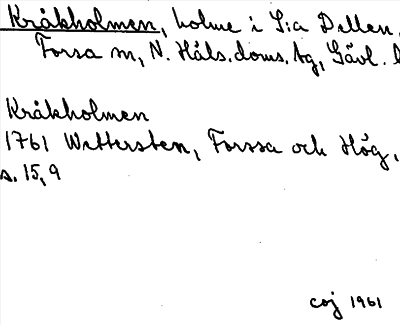 Kråkholmen, holme i S:a Dellen,
Forsa sn, N. Häls. doms. tg, Gävl. l
Kråkholmen
1761 Wettersten, Forssa och Hög,
s. 15, 9
coj 1961